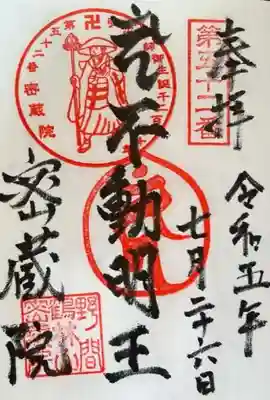 奉拝
第五十二番
令和五年
七月二十六日
不動明王
密蔵院
五十二番 密蔵院
野間